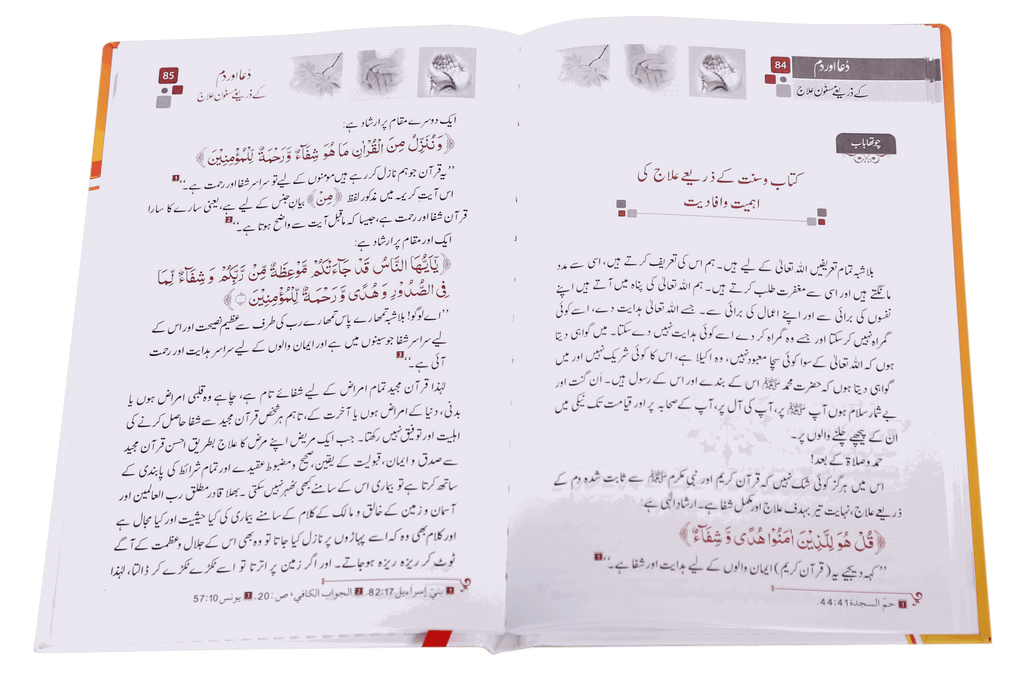 84
دُعا اور دَم
کے ذریعے مسنون علاج
چوتھا باب
کتاب وسنت کے ذریعے علاج کی
اہمیت وافادیت
بلاشبہ تمام تعریفیں اللہ تعالیٰ کے لیے ہیں۔ ہم اس کی تعریف کرتے ہیں، اسی سے مدد
مانگتے ہیں اور اسی سے مغفرت طلب کرتے ہیں۔ ہم اللہ تعالیٰ کی پناہ میں آتے ہیں اپنے
نفسوں کی برائی سے اور اپنے اعمال کی برائی سے۔ جسے اللہ تعالیٰ ہدایت دے، اسے کوئی
گمراہ نہیں کرسکتا اور جسے وہ گمراہ کر دے اسے کوئی ہدایت نہیں دے سکتا۔ میں گواہی دیتا
ہوں کہ اللہ تعالیٰ کے سوا کوئی سچا معبود نہیں، وہ اکیلا ہے، اس کا کوئی شریک نہیں اور میں
گواہی دیتا ہوں کہ حضرت محمد ﷺ اس کے بندے اور اس کے رسول ہیں۔ اَن گنت اور
بے شمار سلام ہوں آپ ﷺ پر، آپ کی آل پر، آپ کے صحابہ پر اور قیامت تک نیکی میں
ان کے پیچھے چلنے والوں پر۔
حمد وصلاۃ کے بعد!
اس میں ہرگز کوئی شک نہیں کہ قرآن کریم اور نبی مکرم ﷺ سے ثابت شدہ دم کے
ذریعے علاج، نہایت تیر بہدف علاج اور مکمل شفا ہے۔ ارشاد الٰہی ہے:
﴿قُلْ هُوَ لِلَّذِيْنَ اٰمَنُوْا هُدًى وَّ شِفَآءٌ﴾
’’کہہ دیجیے یہ (قرآن کریم) ایمان والوں کے لیے ہدایت اور شفا ہے۔‘‘ 1
1 حمٓ السجدۃ 44:41.
85
دُعا اور دَم
کے ذریعے مسنون علاج
ایک دوسرے مقام پر ارشاد ہے:
﴿وَنُنَزِّلُ مِنَ الْقُرْاٰنِ مَا هُوَ شِفَآءٌ وَّرَحْمَةٌ لِّلْمُؤْمِنِيْنَ﴾
’’یہ قرآن جو ہم نازل کر رہے ہیں مومنوں کے لیے تو سراسر شفا اور رحمت ہے۔‘‘ 1
اس آیتِ کریمہ میں مذکور لفظ ﴿مِنْ﴾ بیانِ جنس کے لیے ہے، یعنی سارے کا سارا
قرآن شفا اور رحمت ہے، جیسا کہ ماقبل آیت سے واضح ہوتا ہے۔‘‘ 2
ایک اور مقام پر ارشاد ہے:
﴿يٰٓاَيُّهَا النَّاسُ قَدْ جَآءَتْكُمْ مَّوْعِظَةٌ مِّنْ رَّبِّكُمْ وَ شِفَآءٌ لِّمَا
فِى الصُّدُوْرِ وَ هُدًى وَّ رَحْمَةٌ لِّلْمُؤْمِنِيْنَ﴾
’’اے لوگو! بلاشبہ تمھارے پاس تمھارے رب کی طرف سے عظیم نصیحت اور اس کے
لیے سراسر شفا جو سینوں میں ہے اور ایمان والوں کے لیے سراسر ہدایت اور رحمت
آئی ہے۔‘‘ 3
لہٰذا قرآن مجید تمام امراض کے لیے شفائے تام ہے، چاہے وہ قلبی امراض ہوں یا
بدنی، دنیا کے امراض ہوں یا آخرت کے، تاہم ہر شخص قرآن مجید سے شفا حاصل کرنے کی
اہلیت اور توفیق نہیں رکھتا۔ جب ایک مریض اپنے مرض کا علاج بطریق احسن قرآن مجید
سے صدق و ایمان، قبولیت کے یقین، صحیح و مضبوط عقیدے اور تمام شرائط کی پابندی کے
ساتھ کرتا ہے تو بیماری اس کے سامنے بھی ٹھہر نہیں سکتی۔ بھلا قادر مطلق رب العالمین اور
آسمان و زمین کے خالق و مالک کے کلام کے سامنے بیماری کی کیا حیثیت اور کیا مجال ہے
اور کلام بھی وہ کہ اسے پہاڑوں پر نازل کیا جاتا تو وہ بھی اس کے جلال و عظمت کے آگے
ٹوٹ کر ریزہ ریزہ ہو جاتے۔ اور اگر زمین پر اترتا تو اسے ٹکڑے ٹکڑے کر ڈالتا، لہٰذا
1 بنيٓ إسراءيل 82:17. 2 الجواب الكافي، ص: 20. 3 يونس 57:10